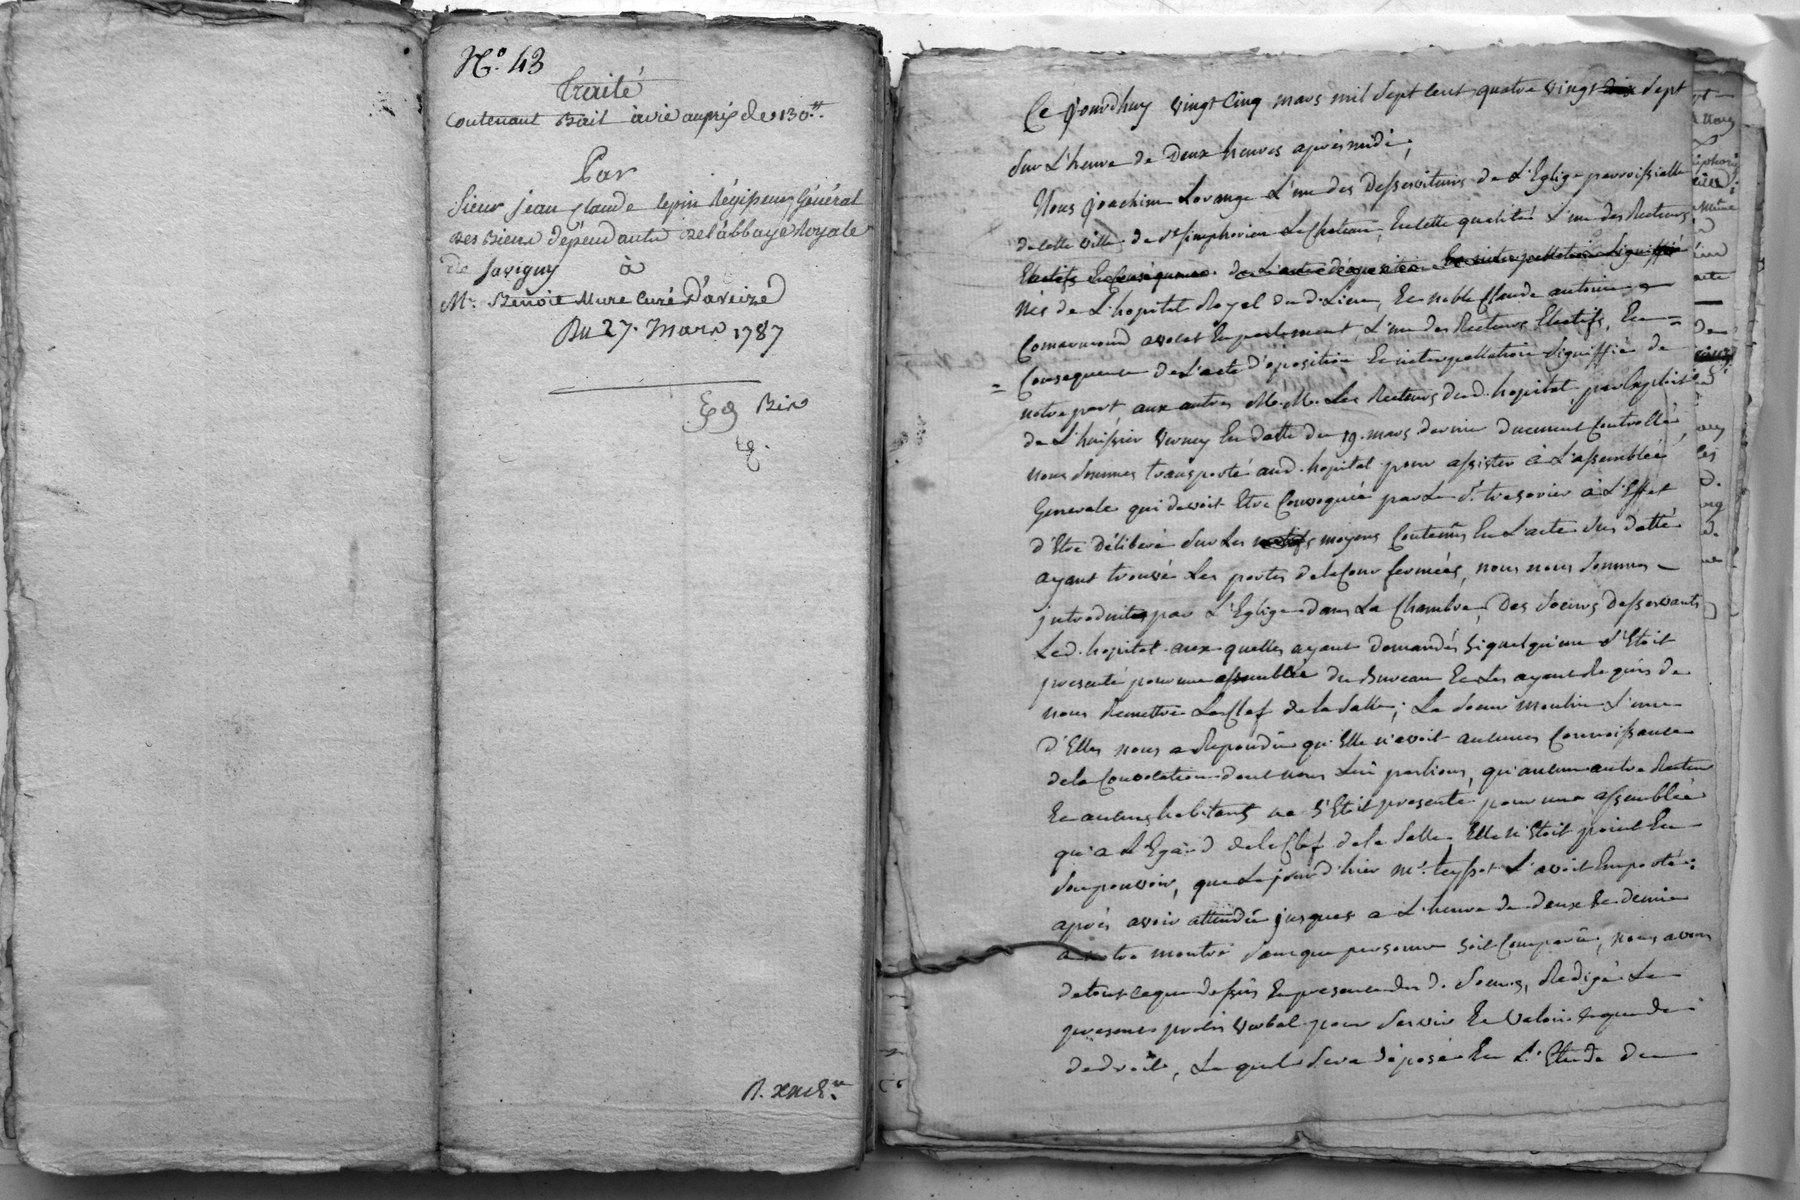 N.º 43
Traité
Contenant Bail à vie au prix de 130.tt
Par
Sieur jean Claude lepin Régisseur Général
des Biens dépendants de l'abbaye Royale
de Savigny à
Mr. Benoit Mure Curé D'aveize
Du 27. Mars 1787
R.
Ce jourdhuy vingt cinq mars mil sept cent quatre vingt sept
sur L'heure de Deux heures après midi,
Nous joachim Lorange L'un des Desserviteurs de L'Eglise parroissialle
de cette ville de St simphorien Le Chateau, En cette qualité L'un des Recteurs
nés de L'hopital Royal du d. Lieu, Et noble Claude antoine
Comarmond avocat En parlement, L'un des Recteurs Electifs, En
Consequence de L'acte d'oposition Et interpellation signiffié de
notre part aux autres M.M. Les Recteurs du d. hopital, par Exploit
de L'huissier verney En datte du 19. mars dernier duement Controllé
nous sommes transporté aud. hopital pour assister à L'assemblée
Generale qui devoit Etre Convoquée par Le sr. tresorier à L'Effet
d'Etre déliberé sur Les moyens Contenus En L'acte sus datté
ayant trouvé Les portes de la Cour fermées, nous nous sommes
introduits par L'Eglise dans La Chambre Des soeurs desservants
Led. hopital aux quelles ayant demandés si quelqu'un s'Etoit
presenté pour une assemblée du Bureau Et Les ayant Requis de
nous Remettre La Clef de la salle; La soeur moulin L'une
d'Elles nous a Repondu qu'Elle n'avoit aucunes Connoissance
de la Convocation dont nous Lui parlions, qu'aucun autre Recteur
Et aucuns habitants ne s'Etoit presenté pour une assemblée
qu'a L'Egard de la Clef de la salle, Elle n'Etoit point En
son pouvoir, que Le jour d'hier mr. teyssot L'avoit Emporté;
après avoir attendu jusques a L'heure de deux Et demie
a notre montre sans que personne soit Comparu, nous avons
de tout ce que dessus En presence des d. soeurs, Redigé Le
present procès verbal pour servir Et Valoir Ce que de
de droit, Le quel sera déposé En L'Etude de